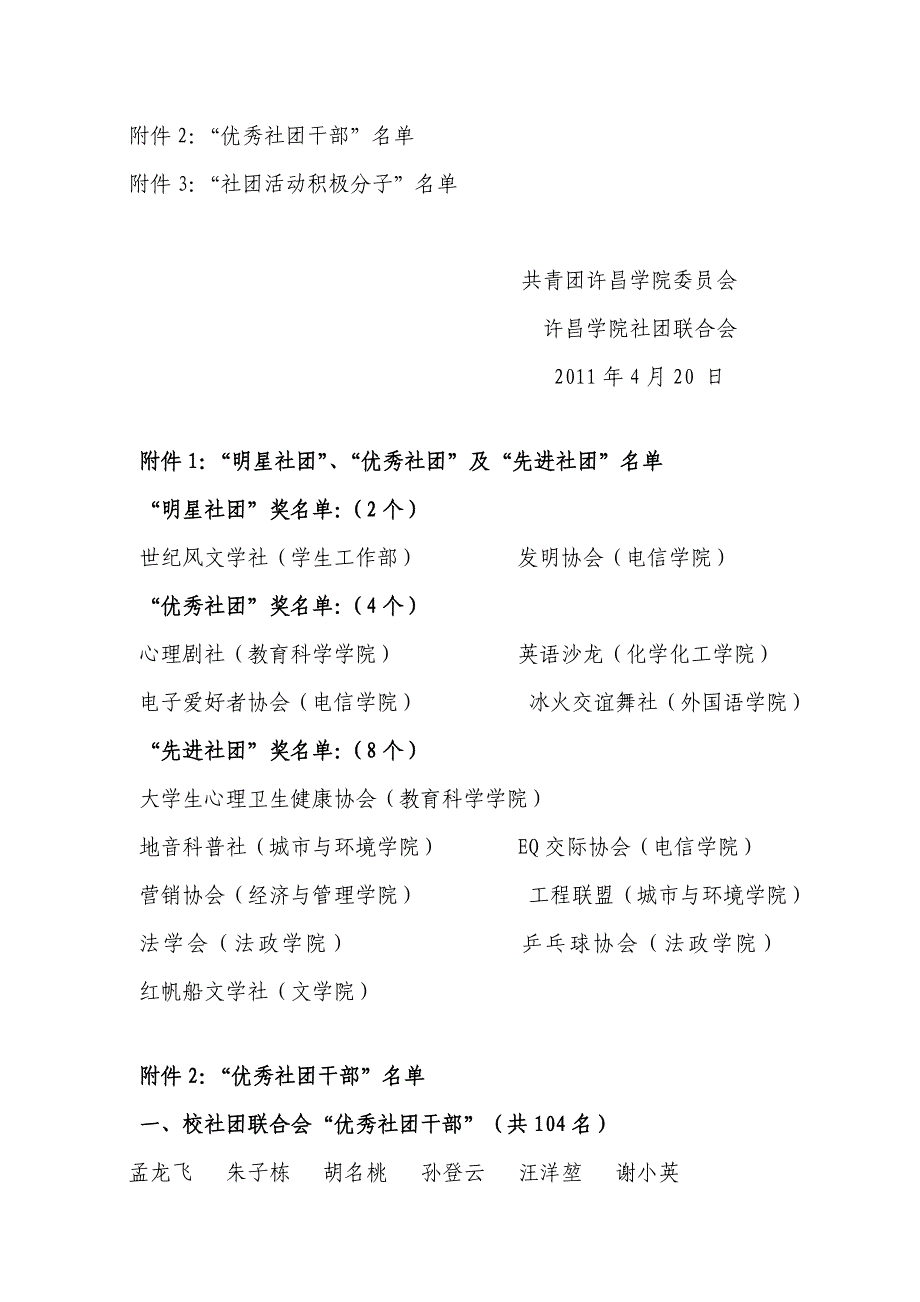 附件 2：“优秀社团干部”名单
附件 3：“社团活动积极分子”名单
共青团许昌学院委员会
许昌学院社团联合会
2011 年 4 月 20 日
附件 1：“明星社团”、“优秀社团”及“先进社团”名单
“明星社团”奖名单：（2 个）
世纪风文学社（学生工作部） 发明协会（电信学院）
“优秀社团”奖名单：（4 个）
心理剧社（教育科学学院） 英语沙龙（化学化工学院）
电子爱好者协会（电信学院） 冰火交谊舞社（外国语学院）
“先进社团”奖名单：（8 个）
大学生心理卫生健康协会（教育科学学院）
地音科普社（城市与环境学院） EQ 交际协会（电信学院）
营销协会（经济与管理学院） 工程联盟（城市与环境学院）
法学会（法政学院） 乒乓球协会（法政学院）
红帆船文学社（文学院）
附件 2：“优秀社团干部”名单
一、校社团联合会“优秀社团干部”（共 104 名）
孟龙飞 朱子栋 胡名桃 孙登云 汪洋堃 谢小英